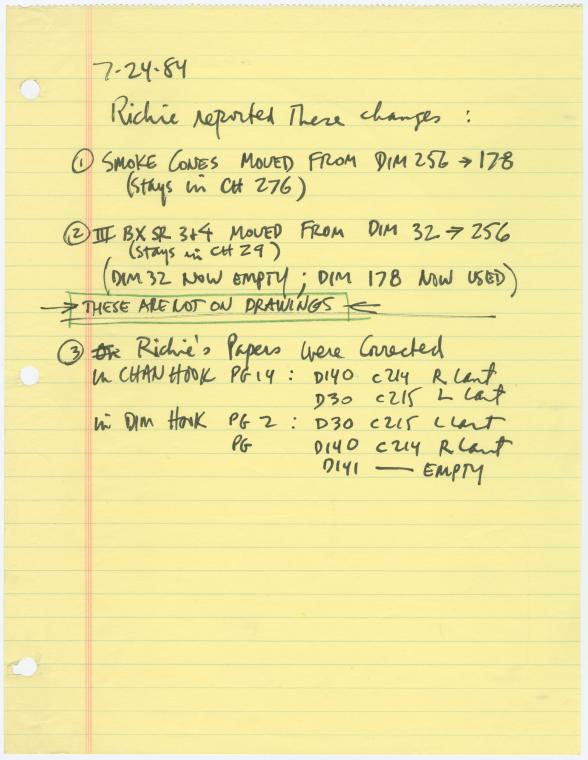 7-24-84
Richie reported these changes :
① SMOKE CONES MOVED FROM DIM 256 → 178
(Stays in CH 276)
② III BX SR 3+4 MOVED FROM DIM 32 → 256
(Stays in CH 29)
(DIM 32 NOW EMPTY ; DIM 178 NOW USED)
→ THESE ARE NOT ON DRAWINGS ←
③ Richie's Papers were Corrected
in CHAN HOOK PG 14 : D140 C214 R Cant
D30 C215 L Cant
in DIM HOOK PG 2 : D30 C215 L Cant
PG D140 C214 R Cant
D141 — EMPTY